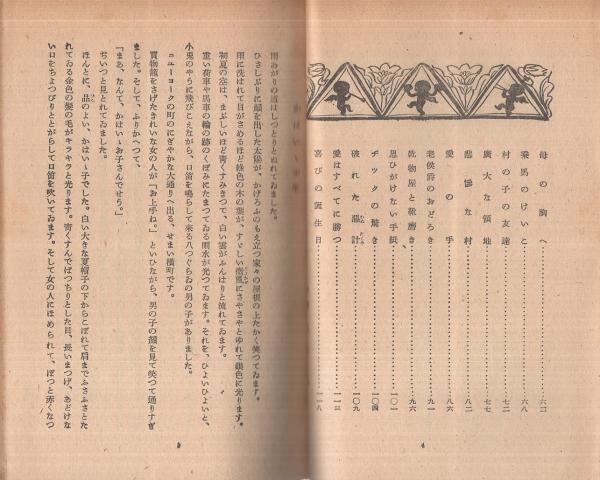 母の胸へ……六二
乗馬のけいこ……六八
村の子の友達……七二
廣大な領地……七七
悲慘な村……八二
愛の手……八六
老侯爵のおどろき……九一
乾物屋と靴磨き……九六
思ひがけない手紙……一〇一
ヂックの驚き……一〇四
破れた謀計……一〇九
愛はすべてに勝つ……一一三
喜びの誕生日……一一八
4
雨あがりの道はしつとりとぬれてゐました。
ひさしぶりに顔を出した太陽が、かげろふのもえ立つ家々の屋根の上たかく笑つてゐます。
雨に洗はれて目がさめるほど緑色の木の葉が、すゞしい微風にさやさやとゆれて銀色に光ります。
初夏の空は、まぶしいほど青くすみきつて、白い雲がふんはりと流れてゐます。
重い荷車や馬車の輪の跡のくぼみにたまつてゐる雨水が光つてゐます。それを、ひよいひよいと、
小兎のやうに飛びこえながら、口笛を鳴らして来る八つぐらゐの男の子がありました。
ニューヨークの町のにぎやかな大通りへ出る、せまい横町です。
買物籠をさげたきれいな女の人が「お上手ね。」といひながら、男の子の顔を見て笑つて通りすぎ
ました。そして、ふりかへつて、
「まあ、なんて、かはいゝお子さんでせう。」
ぢいつと見とれてゐました。
ほんとに、品のよい、かはいゝ子でした。白い大きな夏帽子の下からこぼれて肩までふさふさとた
れてゐる金色の髪の毛がキラキラと光ります。青くすんでぱつちりとした目、長いまつげ、あどけな
い口をちよつぴりととがらして口笛を吹いてゐます。そして女の人にほめられて、ぽつと赤くなつ
5